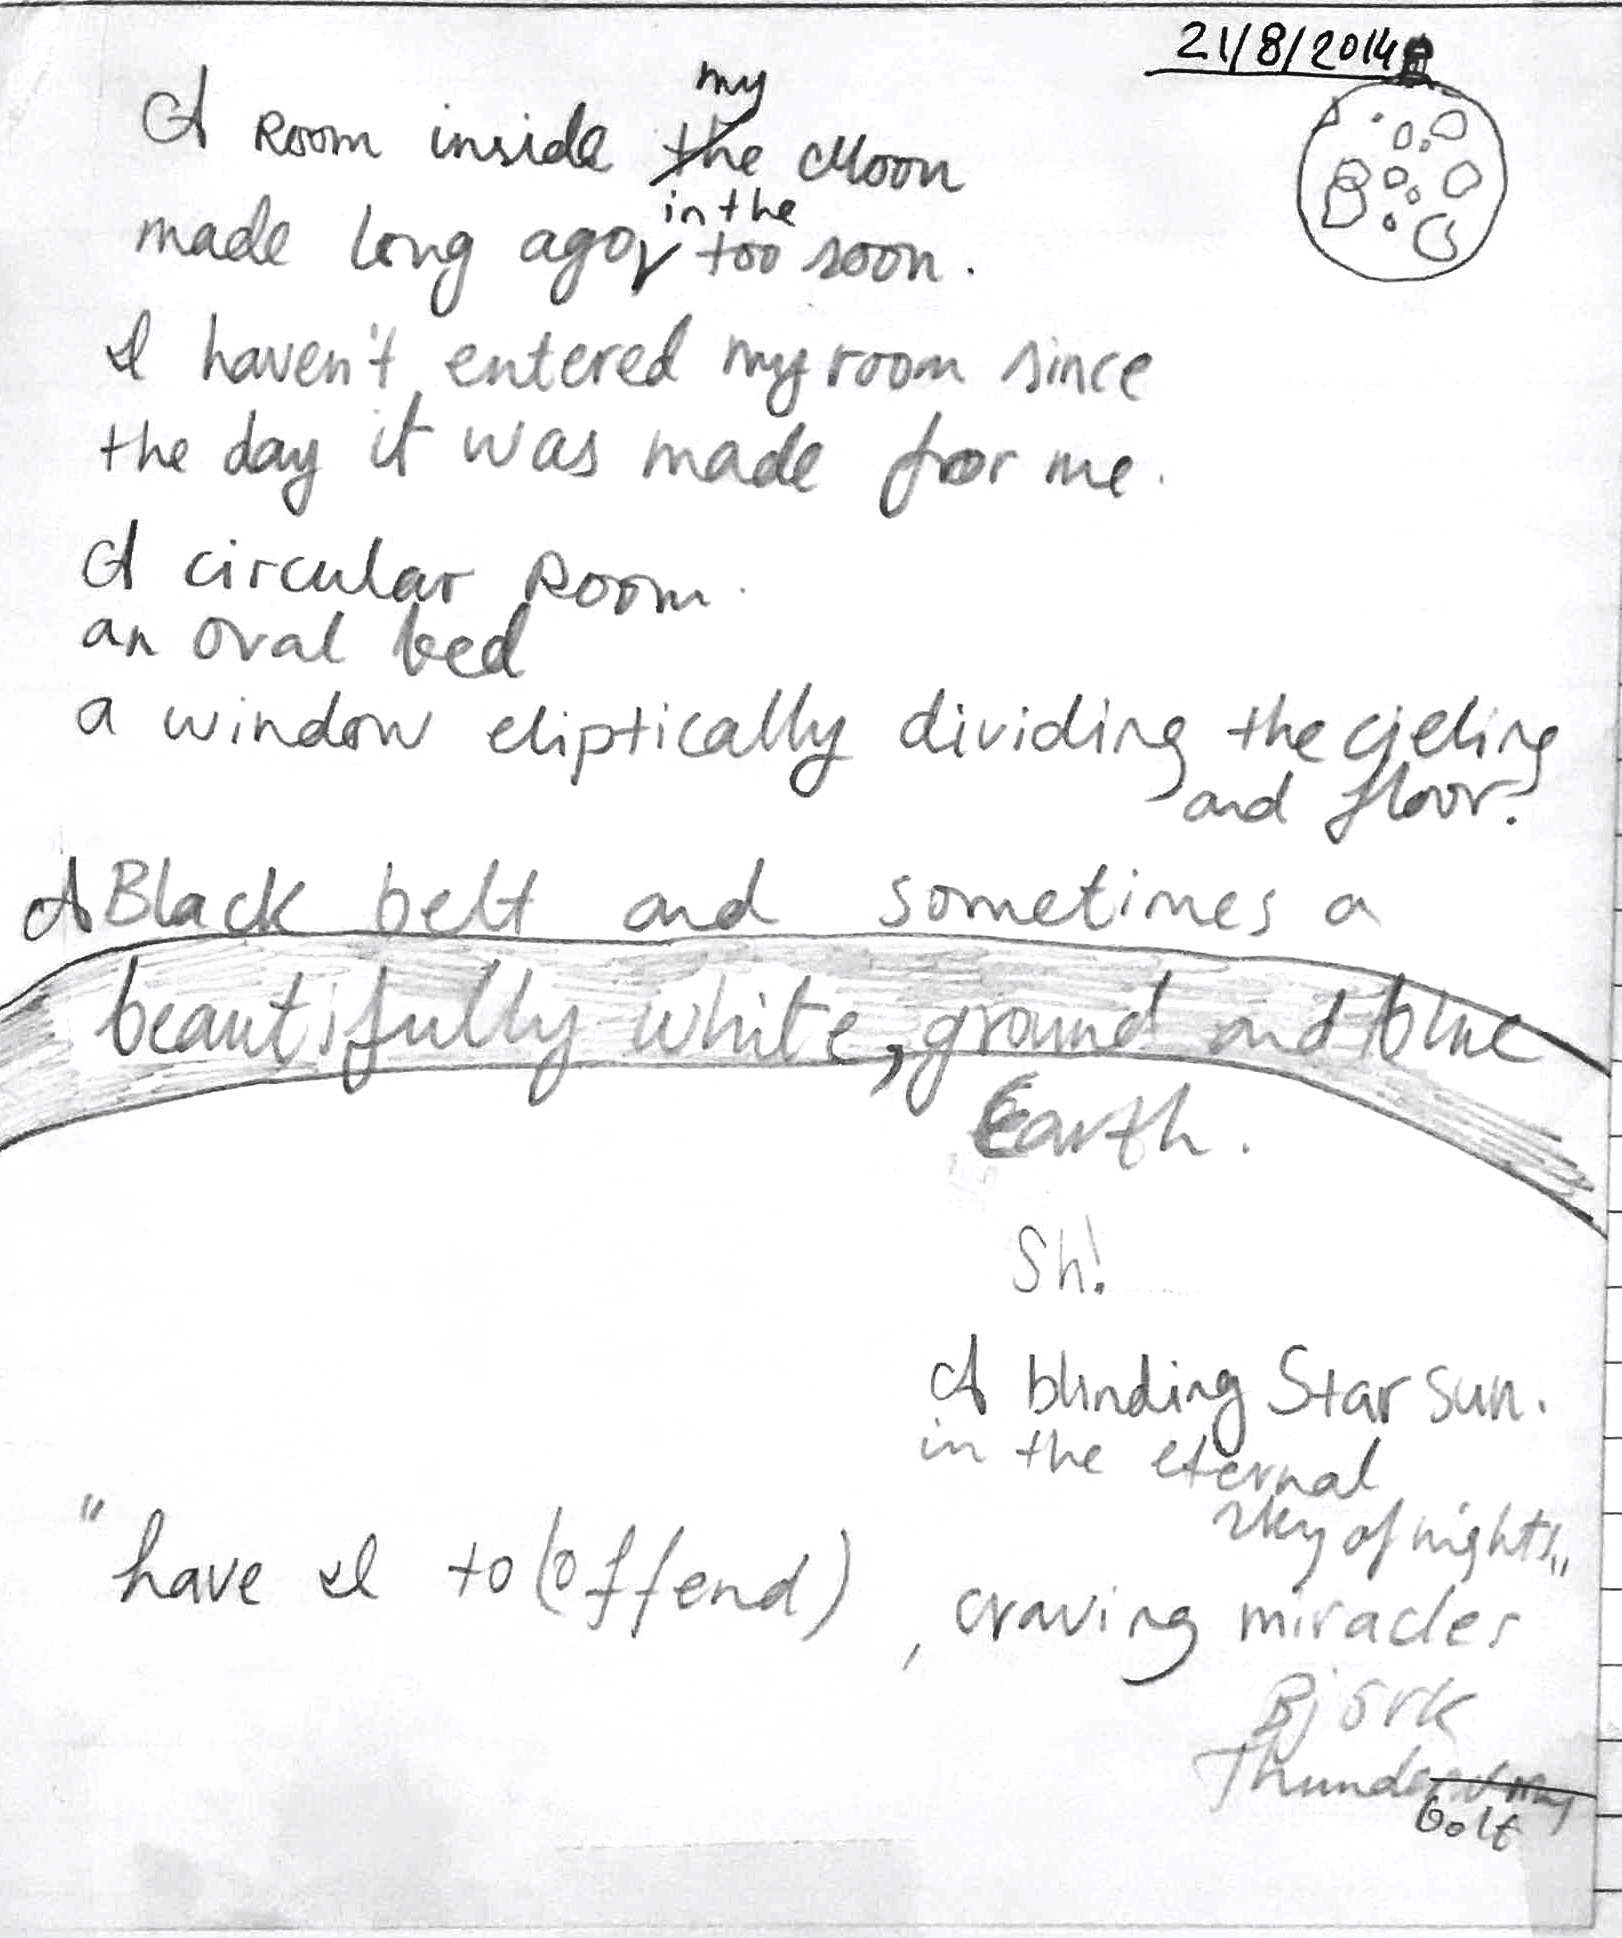 21/8/2014
A Room inside the my Moon
made long ago, in the too soon.
I haven't entered my room since
the day it was made for me.
A circular Room.
an oval bed
a window eliptically dividing the cieling
and floor.
A Black belt and sometimes a
beautifully white, ground and blue
Earth.
Sh!
A blinding Star Sun.
in the eternal
sky of nights,,
"have I to (offend) , craving miracles
Björk
Thunder
bolt